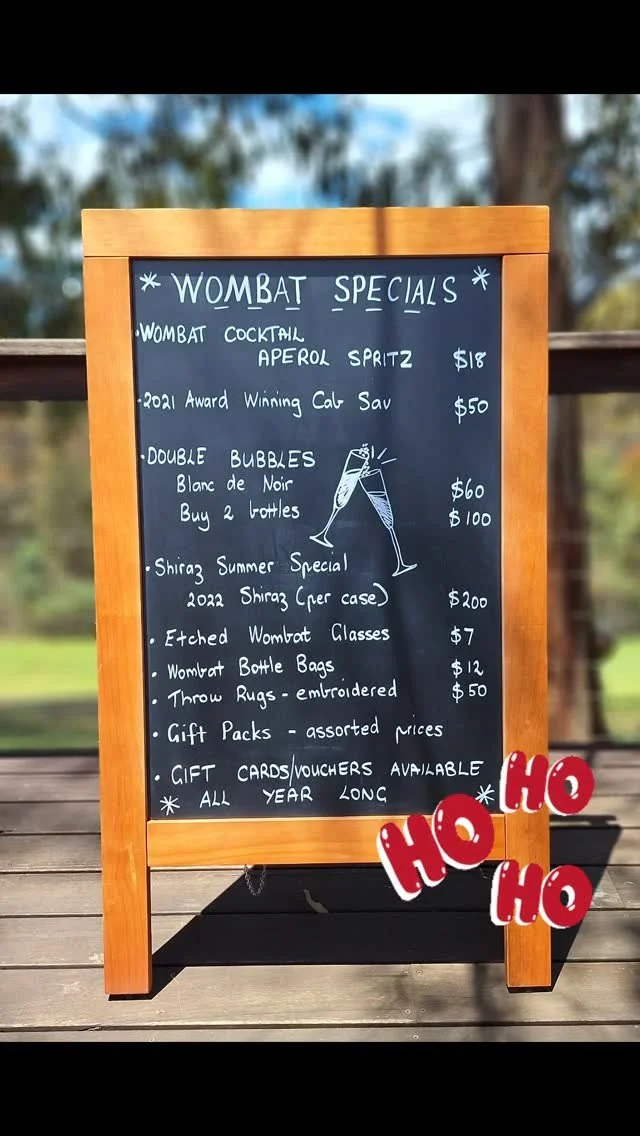 * WOMBAT SPECIALS *
• WOMBAT COCKTAIL
APEROL SPRITZ $18
• 2021 Award Winning Cab Sav $50
• DOUBLE BUBBLES
Blanc de Noir $60
Buy 2 bottles $100
• Shiraz Summer Special
2022 Shiraz (per case) $200
• Etched Wombat Glasses $7
• Wombat Bottle Bags $12
• Throw Rugs - embroidered $50
• Gift Packs - assorted prices
• GIFT CARDS/VOUCHERS AVAILABLE
* ALL YEAR LONG *
HO
HO
HO